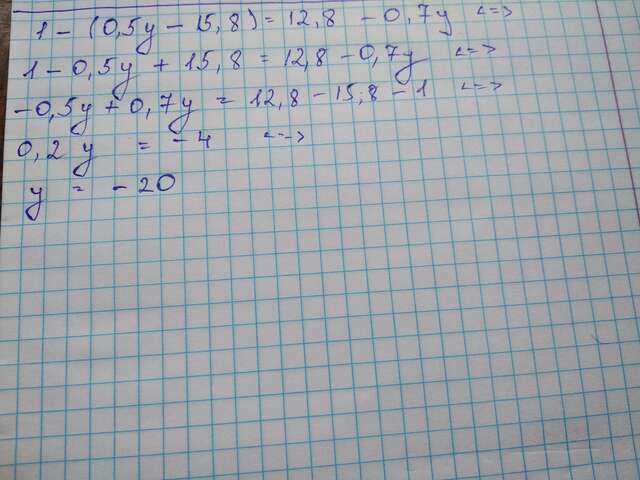 1 - (0,5y - 15,8) = 12,8 - 0,7y <=>
1 - 0,5y + 15,8 = 12,8 - 0,7y <=>
-0,5y + 0,7y = 12,8 - 15,8 - 1 <=>
0,2y = -4 <=>
y = -20